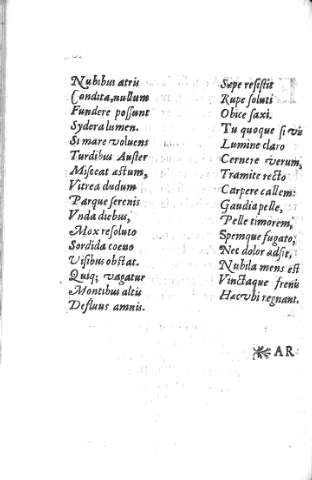 Nubibus atris
Condita, nullum
Fundere possunt
Sydera lumen.
Si mare voluens
Turdibus Auster
Misceat æstum,
Vitrea dudum
Parque serenis
Vnda diebus,
Mox resoluto
Sordida coeno
Visibus obstat.
Quiq; vagatur
Montibus altis
Defluus amnis.
Sæpe resistit
Rupe soluti
Obice saxi.
Tu quoque si vis
Lumine claro
Cernere verum,
Tramite recto
Carpere callem:
Gaudia pelle,
Pelle timorem,
Spemque fugato,
Nec dolor adsie,
Nubila mens est
Vinctaque frenis
Hæc vbi regnant.
AR